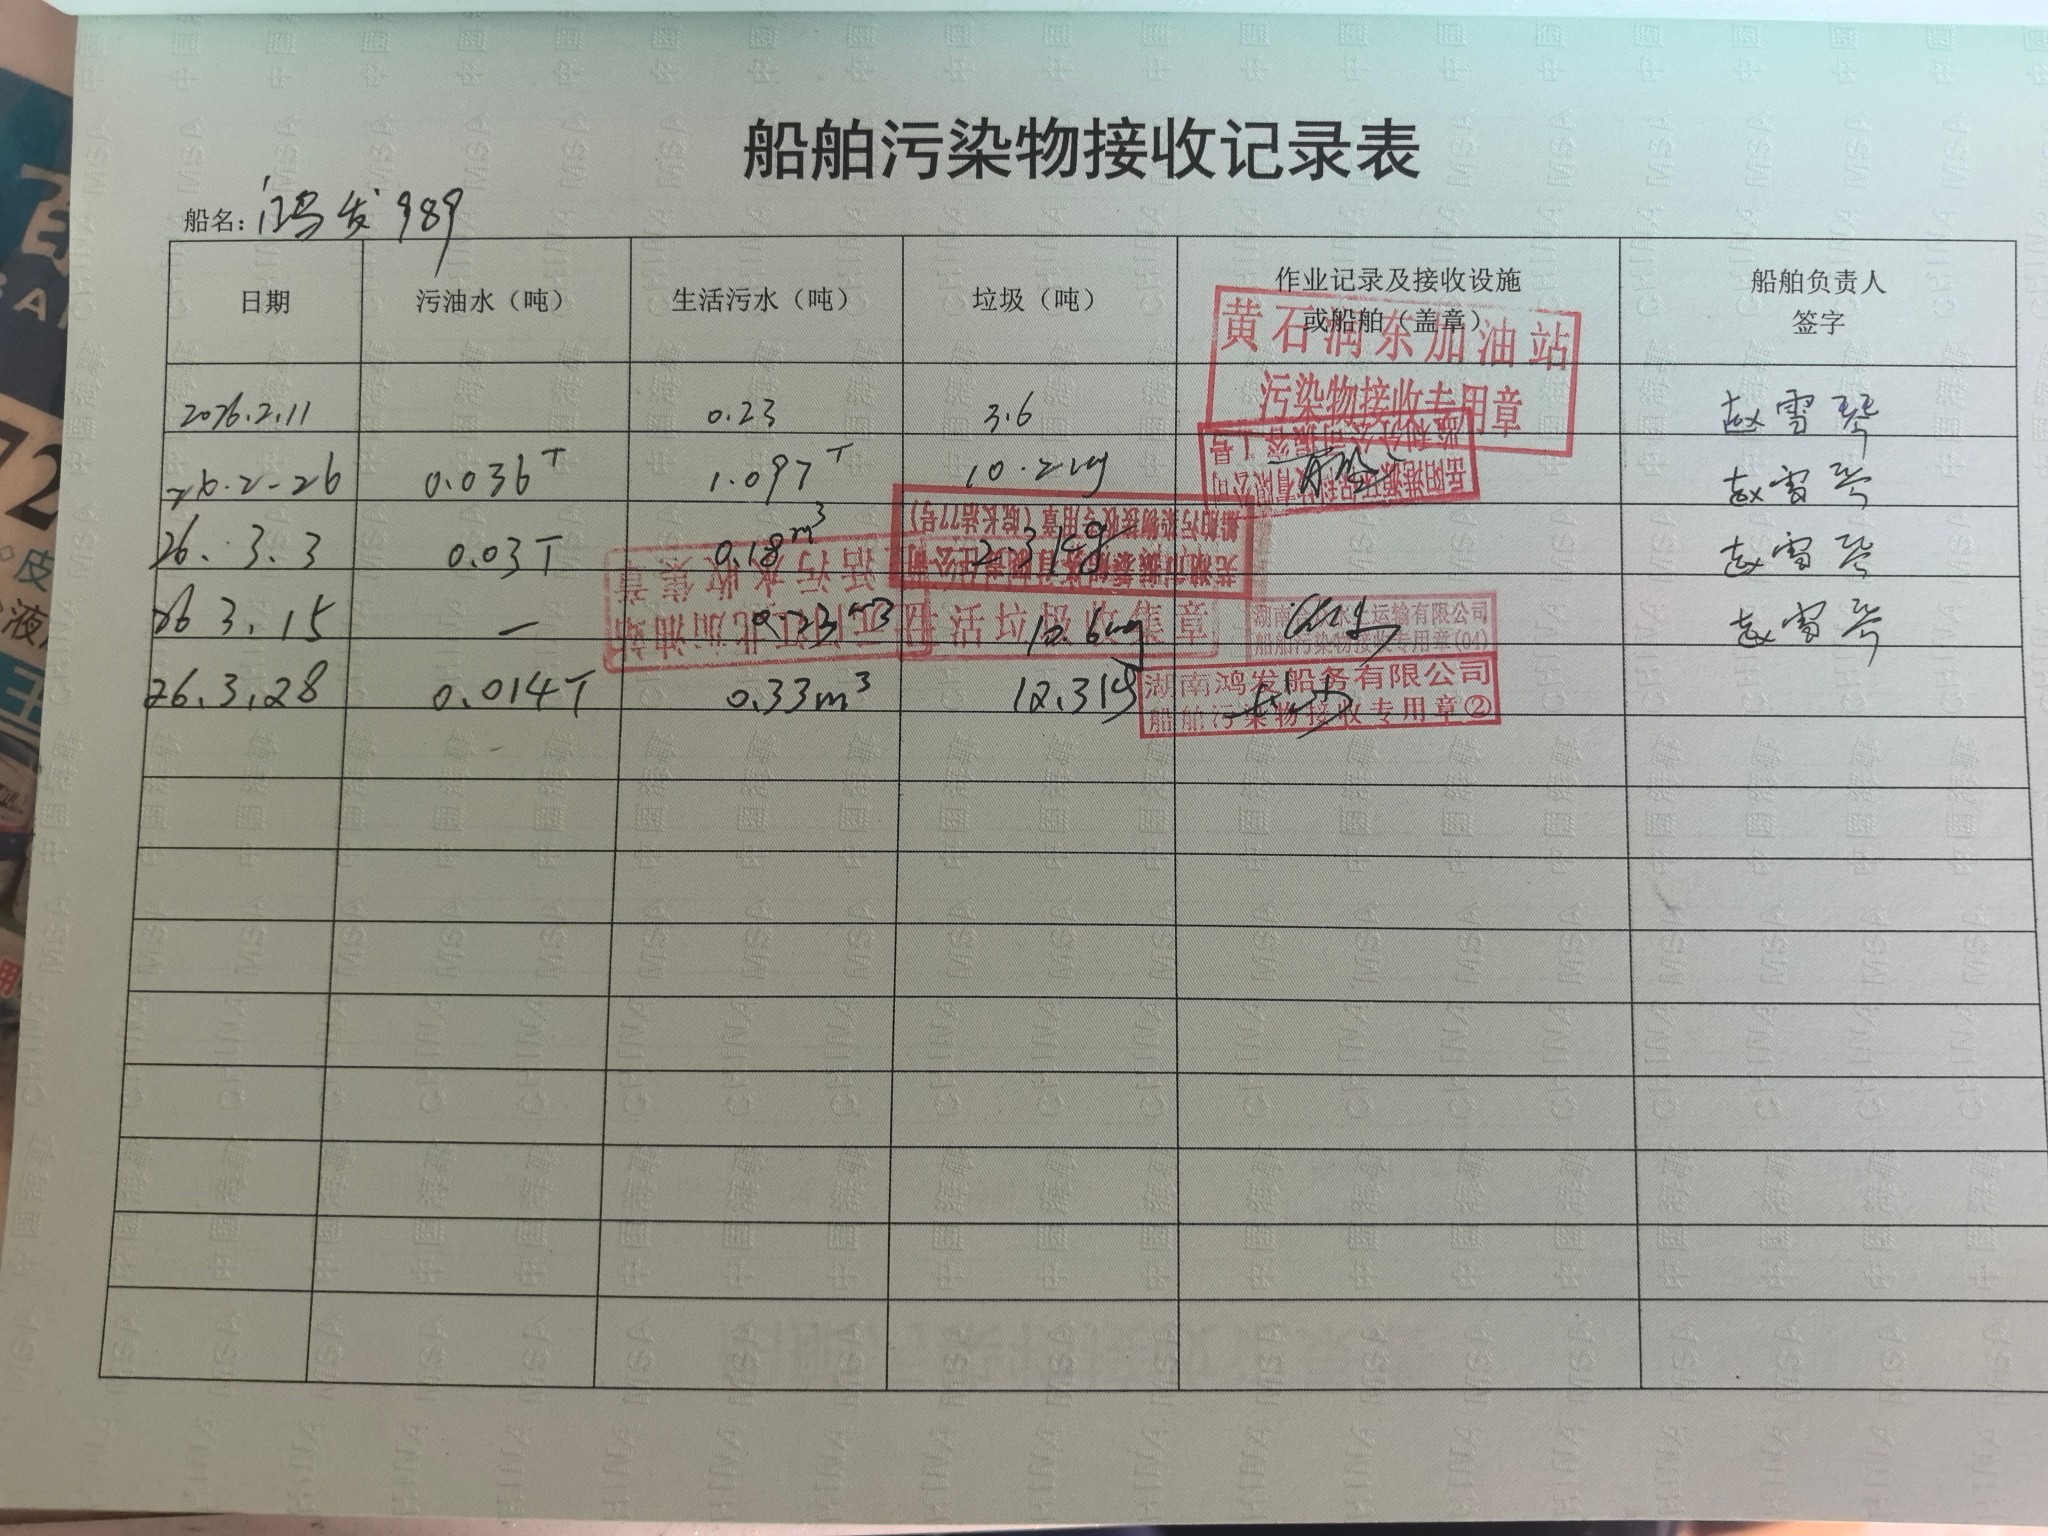 船舶污染物接收记录表
船名：鸿发989
日期 污油水（吨） 生活污水（吨） 垃圾（吨） 作业记录及接收设施或船舶（盖章） 船舶负责人签字
黄石润东加油站
污染物接收专用章
2026.2.11 0.23 3.6 赵雪琴
26.2-26 0.036T 1.097T 10.2kg 赵雪琴
26.3.3 0.03T 0.18m³ 2.3kg 赵雪琴
船舶污染物接收专用章
26 3.15 — 0.23m³ 12.6kg 赵雪琴
生活污水收集章
生活垃圾收集章
湖南 水 运输有限公司
船舶污染物接收专用章(04)
26.3.28 0.014T 0.33m³ 12.3kg
湖南鸿发船务有限公司
船舶污染物接收专用章②
72
皮
液
王
中国海事 CHINA MSA